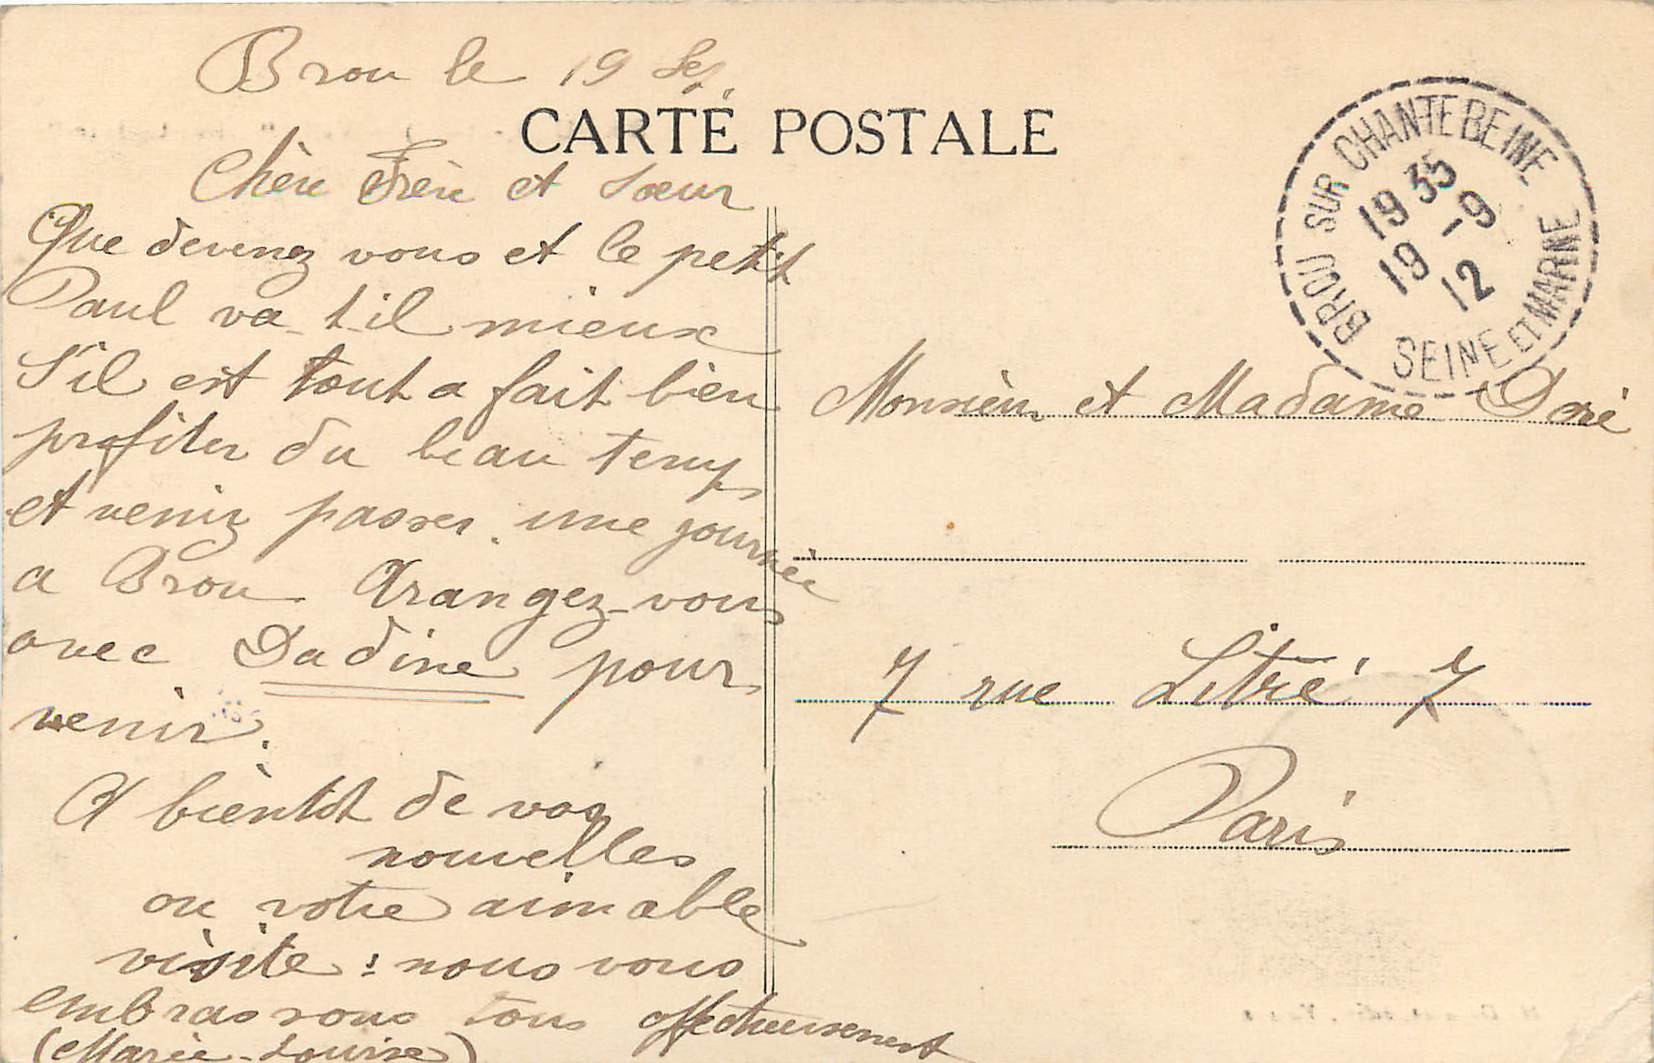 Brou le 19 Sep.
CARTE POSTALE
Chère Frère et Sœur
Que devenez vous et le petit
Paul va-t-il mieux
S'il est tout a fait bien
profiter du beau temps
et venir passer une journée
a Brou Arangez-vous
avec Dadine pour
venir.
A bientot de vos
nouvelles
ou votre aimable
visite : nous vous
embrassons tous affectueusement
(Marie-Louise)
BROU SUR CHANTEBEINE
19 35
19 -9
12
SEINE ET MARNE
Monsieur et Madame Doré
7 rue Litré 7
Paris